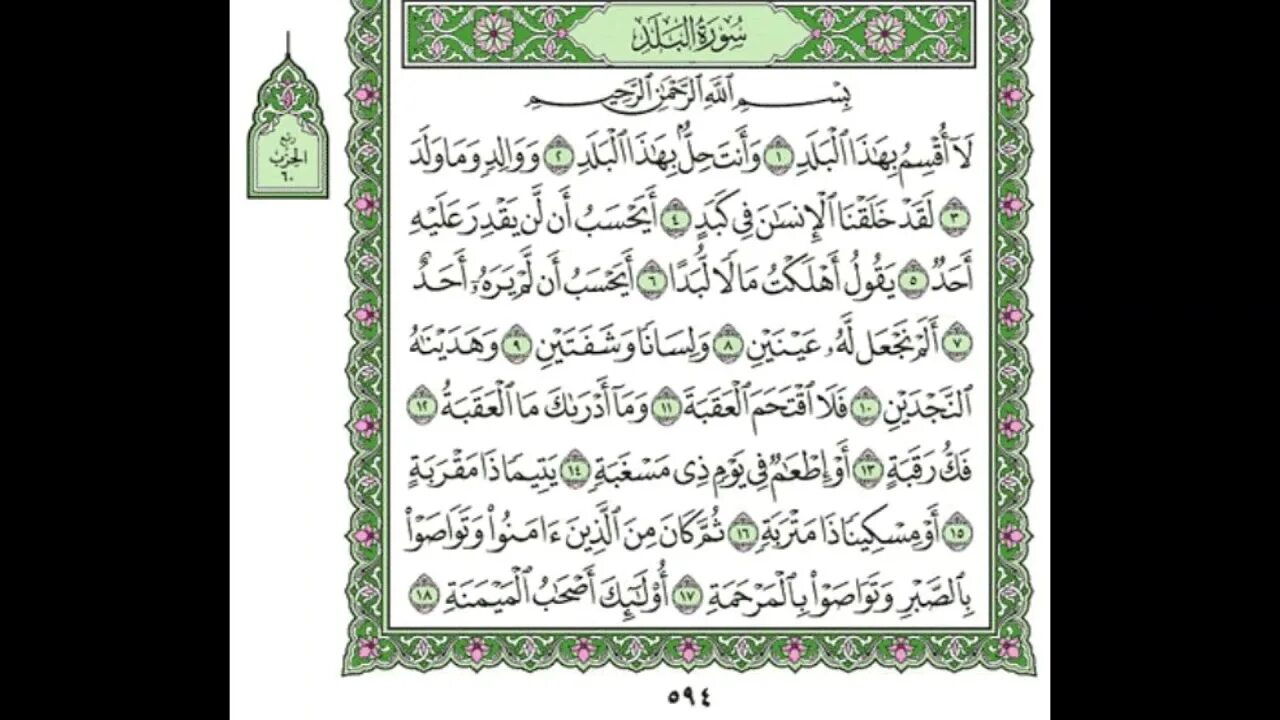 سُورَةُ البَلَدِ
بِسْمِ ٱللَّهِ ٱلرَّحْمَٰنِ ٱلرَّحِيمِ
رُبْع
الحِزْب
٦٠
لَآ أُقْسِمُ بِهَٰذَا ٱلْبَلَدِ ١ وَأَنتَ حِلٌّۢ بِهَٰذَا ٱلْبَلَدِ ٢ وَوَالِدٍ وَمَا وَلَدَ
٣ لَقَدْ خَلَقْنَا ٱلْإِنسَٰنَ فِى كَبَدٍ ٤ أَيَحْسَبُ أَن لَّن يَقْدِرَ عَلَيْهِ
أَحَدٌ ٥ يَقُولُ أَهْلَكْتُ مَالًا لُّبَدًا ٦ أَيَحْسَبُ أَن لَّمْ يَرَهُۥٓ أَحَدٌ
٧ أَلَمْ نَجْعَل لَّهُۥ عَيْنَيْنِ ٨ وَلِسَانًا وَشَفَتَيْنِ ٩ وَهَدَيْنَٰهُ
ٱلنَّجْدَيْنِ ١٠ فَلَا ٱقْتَحَمَ ٱلْعَقَبَةَ ١١ وَمَآ أَدْرَىٰكَ مَا ٱلْعَقَبَةُ ١٢
فَكُّ رَقَبَةٍ ١٣ أَوْ إِطْعَٰمٌ فِى يَوْمٍ ذِى مَسْغَبَةٍ ١٤ يَتِيمًا ذَا مَقْرَبَةٍ
١٥ أَوْ مِسْكِينًا ذَا مَتْرَبَةٍ ١٦ ثُمَّ كَانَ مِنَ ٱلَّذِينَ ءَامَنُوا۟ وَتَوَاصَوْا۟
بِٱلصَّبْرِ وَتَوَاصَوْا۟ بِٱلْمَرْحَمَةِ ١٧ أُو۟لَٰٓئِكَ أَصْحَٰبُ ٱلْمَيْمَنَةِ ١٨
٥٩٤